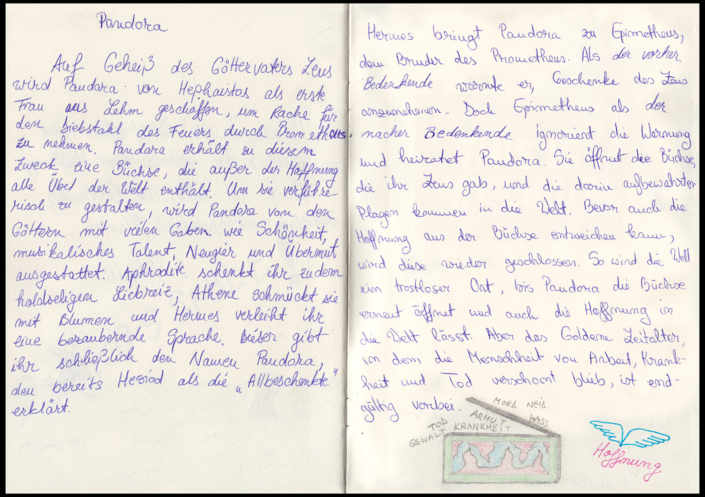 Pandora
Auf Geheiß des Göttervaters Zeus
wird Pandora von Hephaistos als erste
Frau aus Lehm geschaffen, um Rache für
den Diebstahl des Feuers durch Prometheus
zu nehmen. Pandora erhält zu diesem
Zweck eine Büchse, die außer der Hoffnung
alle Übel der Welt enthält. Um sie verführe-
risch zu gestalten, wird Pandora von den
Göttern mit vielen Gaben wie Schönheit,
musikalisches Talent, Neugier und Übermut
ausgestattet. Aphrodite schenkt ihr zudem
holdseligen Liebreiz, Athene schmückt sie
mit Blumen und Hermes verleiht ihr
eine bezaubernde Sprache. Dieser gibt
ihr schließlich den Namen Pandora,
den bereits Hesiod als die „Allbeschenkte"
erklärt.
Hermes bringt Pandora zu Epimetheus,
dem Bruder des Prometheus. Als der vorher
Bedenkende warnte er, Geschenke des Zeus
anzunehmen. Doch Epimetheus als der
nacher Bedenkende ignoriert die Warnung
und heiratet Pandora. Sie öffnet die Büchse,
die ihr Zeus gab, und die darin aufbewahrten
Plagen kommen in die Welt. Bevor auch die
Hoffnung aus der Büchse entweichen kann,
wird diese wieder geschlossen. So wird die Welt
ein trostloser Ort, bis Pandora die Büchse
erneut öffnet und auch die Hoffnung in
die Welt lässt. Aber das Goldene Zeitalter,
in dem die Menschheit von Arbeit, Krank-
heit und Tod verschont blieb, ist end-
gültig vorbei.
MORD NEID
TOD ARMUT HASS
GEWALT KRANKHEIT
Hoffnung